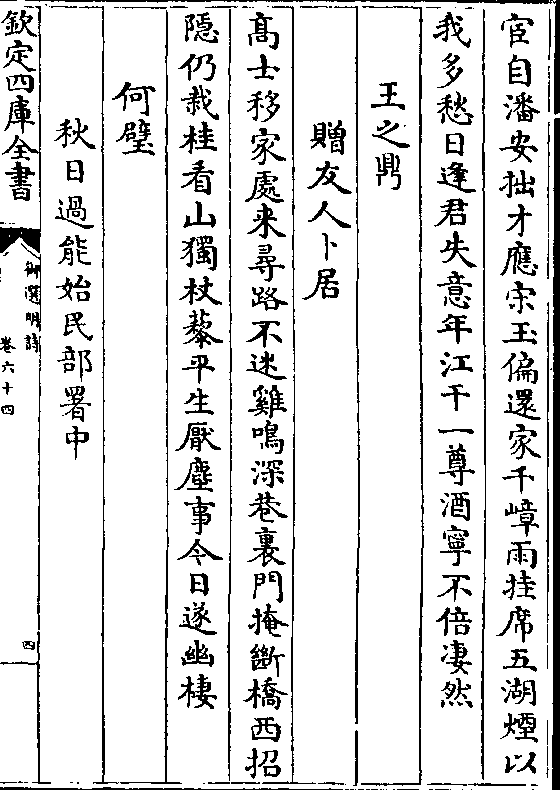 宦自潘安拙才應宋玉偏還家千嶂雨挂席五湖煙以
我多愁日逢君失意年江干一尊酒寧不倍凄然
王之鼎
贈友人卜居
髙士移家處来尋路不迷雞鳴深巷裏門掩㫁橋西招
隱仍栽桂看山獨杖藜平生厭塵事今日遂幽棲
何璧
秋日過能始民部署中
欽定四庫全書
御選明詩
卷六十四
四